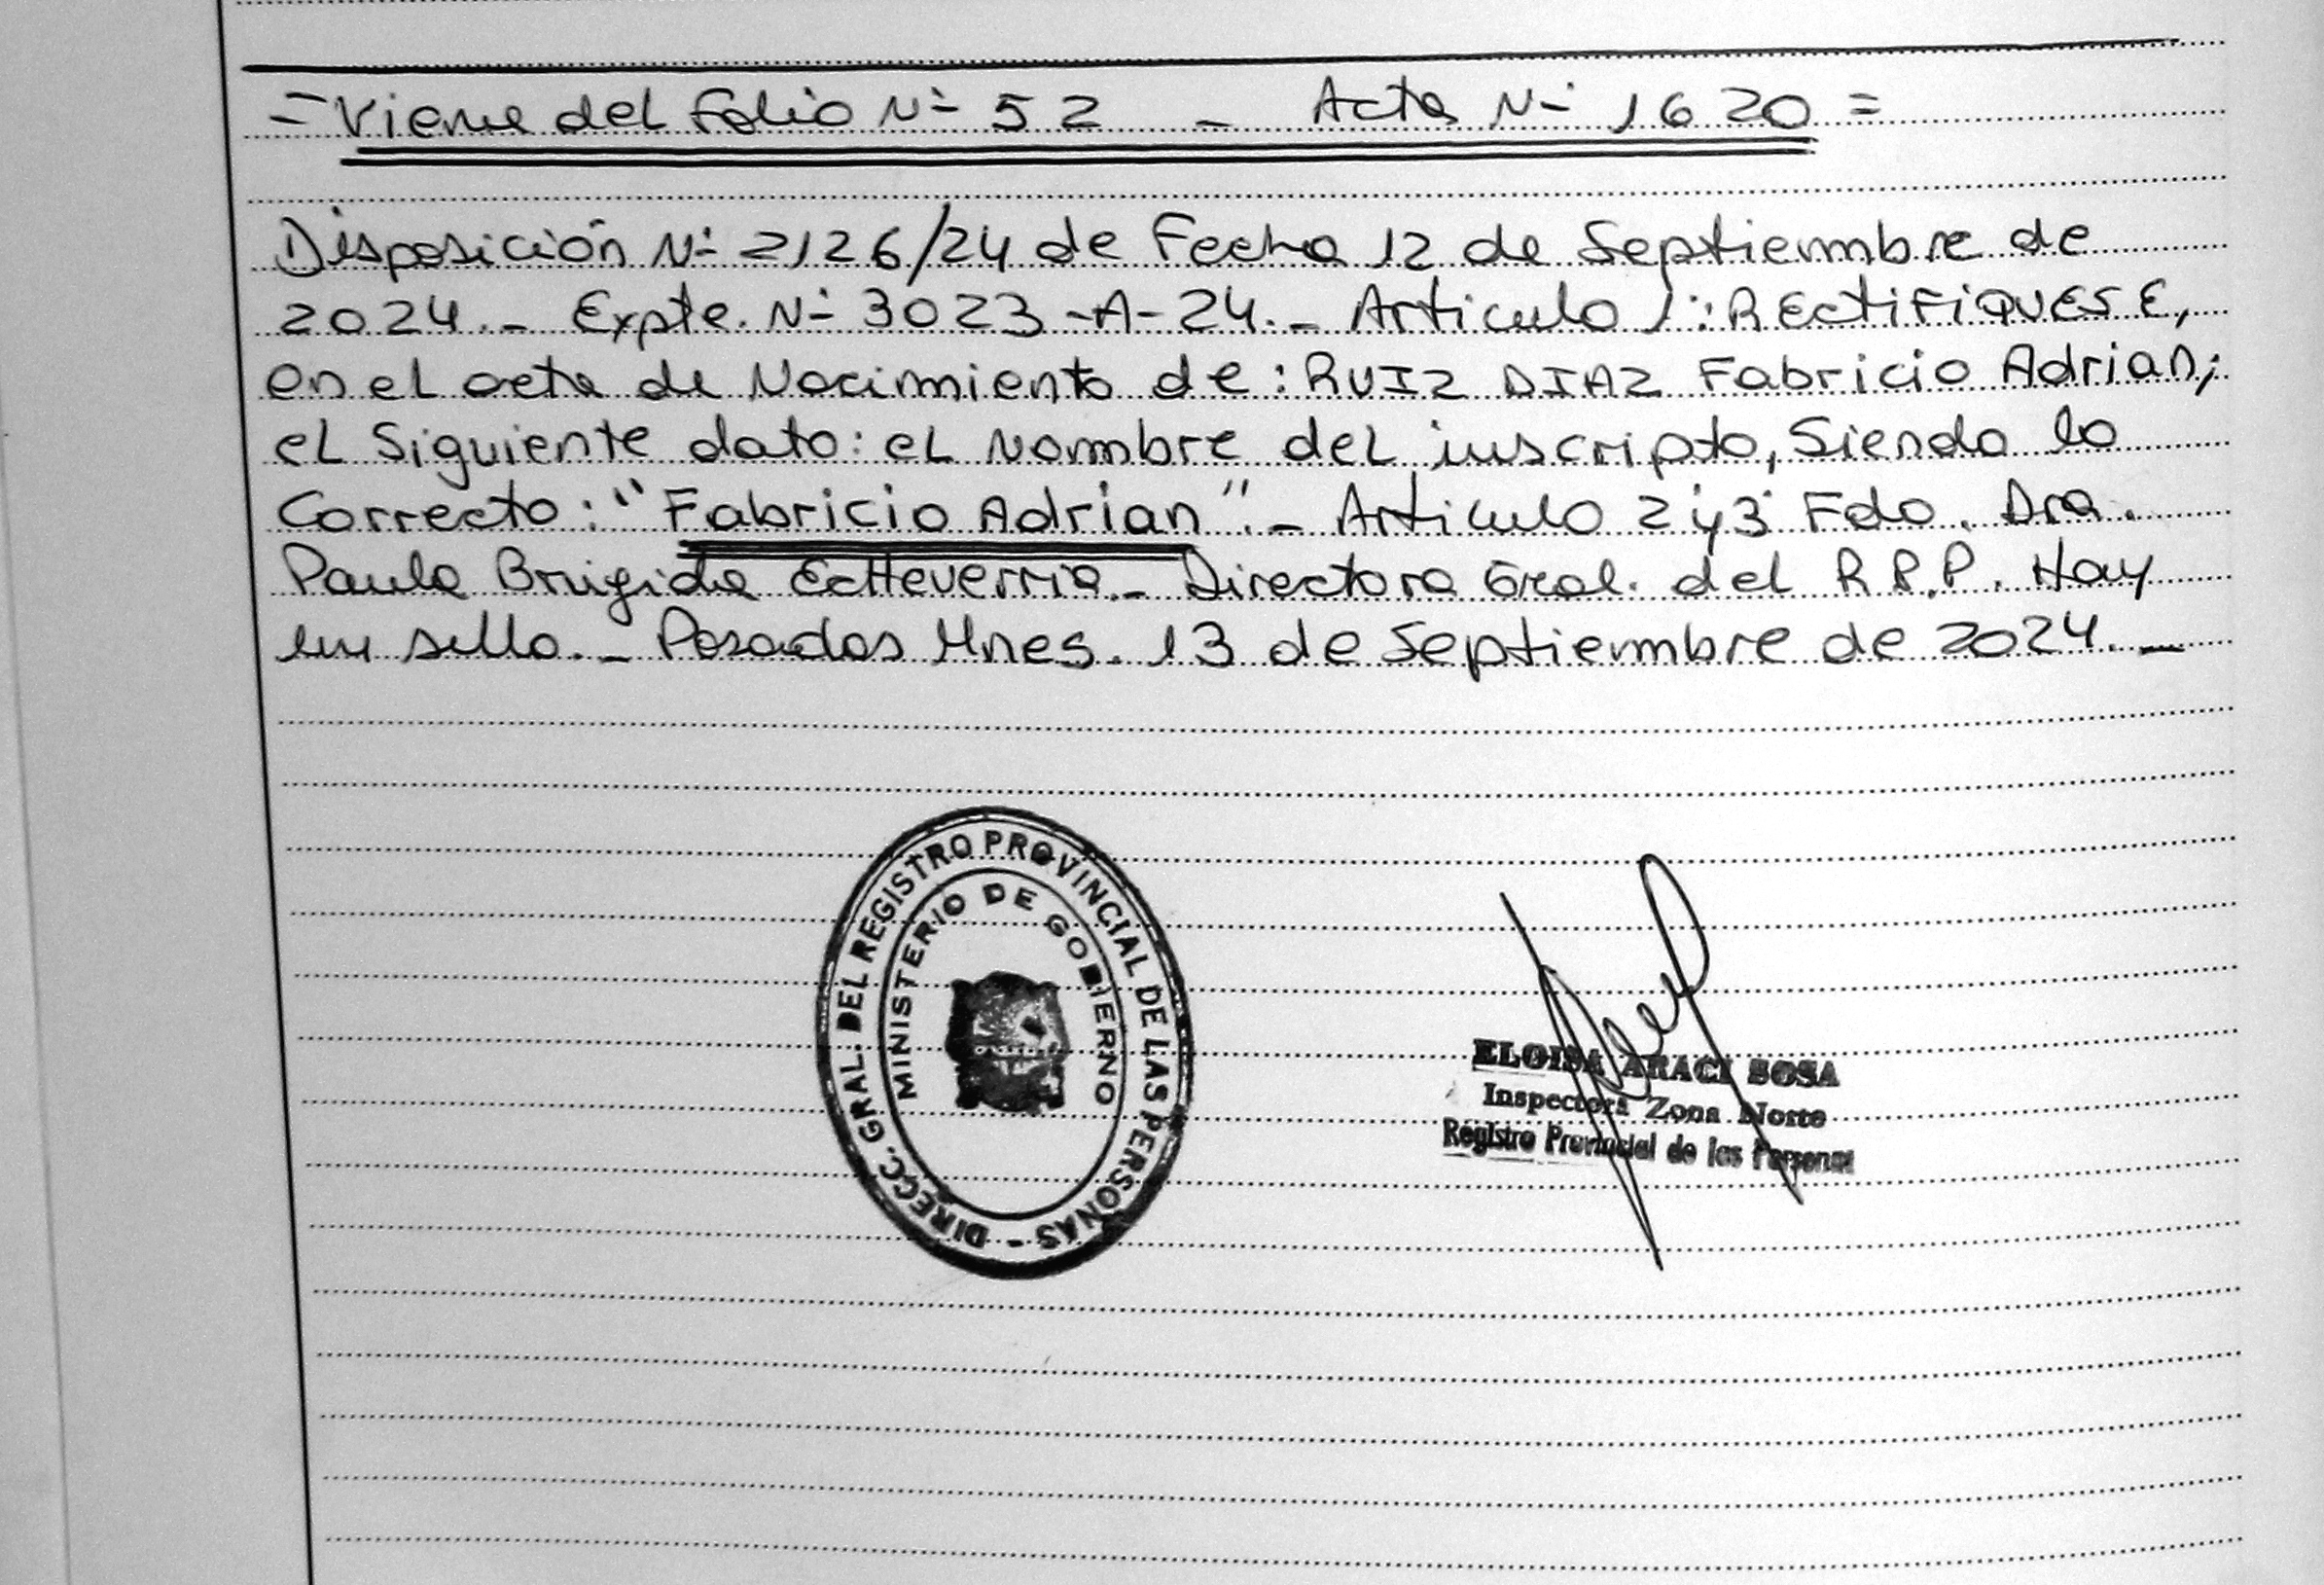 = Viene del Folio Nº 52 - Acta Nº 1620 =
Disposición Nº 2126/24 de Fecha 12 de Septiembre de
2024.- Expte. Nº 3023-A-24.- Articulo 1º: RECTIFIQUESE,
en el acta de Nacimiento de: RUIZ DIAZ Fabricio Adrian;
el Siguiente dato: el Nombre del inscripto, Siendo lo
Correcto: "Fabricio Adrian".- Articulo 2º y 3º Fdo. Dra.
Paula Brigida Echeverria.- Directora Gral. del R.P.P. Hay
un sello.- Posadas Mnes. 13 de Septiembre de 2024.-
DIRECC. GRAL. DEL REGISTRO PROVINCIAL DE LAS PERSONAS -
MINISTERIO DE GOBIERNO
ELOISA ARACI SOSA
Inspectora Zona Norte
Registro Provincial de las Personas